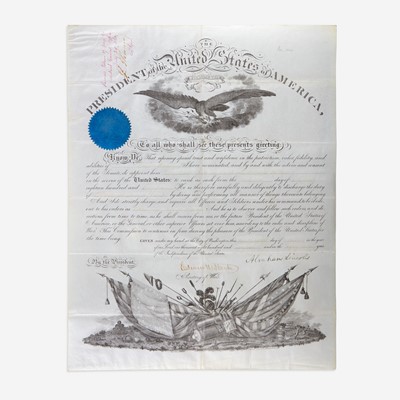 THE
PRESIDENT of the United States of AMERICA,
To all who shall see these presents greeting
Know Ye That reposing special trust and confidence in the patriotism valor fidelity and
abilities of I have nominated and by and with the advice and consent
of the Senate do appoint him
in the service of the United States to rank as such from the day of
eighteen hundred and He is therefore carefully and diligently to discharge the duty
of by doing and performing all manner of things thereunto belonging
And I do strictly charge and require all Officers and Soldiers under his command to be obedi-
ent to his orders as And he is to observe and follow such orders and di-
rections from time to time as he shall receive from me or the future President of the United States of
America or the General or other superior Officers set over him according to the rules and discipline of
War This Commission to continue in force during the pleasure of the President of the United States for
the time being
GIVEN under my hand at the City of Washington this day of in the year
of our Lord one thousand eight hundred and and in the year
of the Independence of the United States
By the President
Abraham Lincoln
Edwin M Stanton
Secretary of War